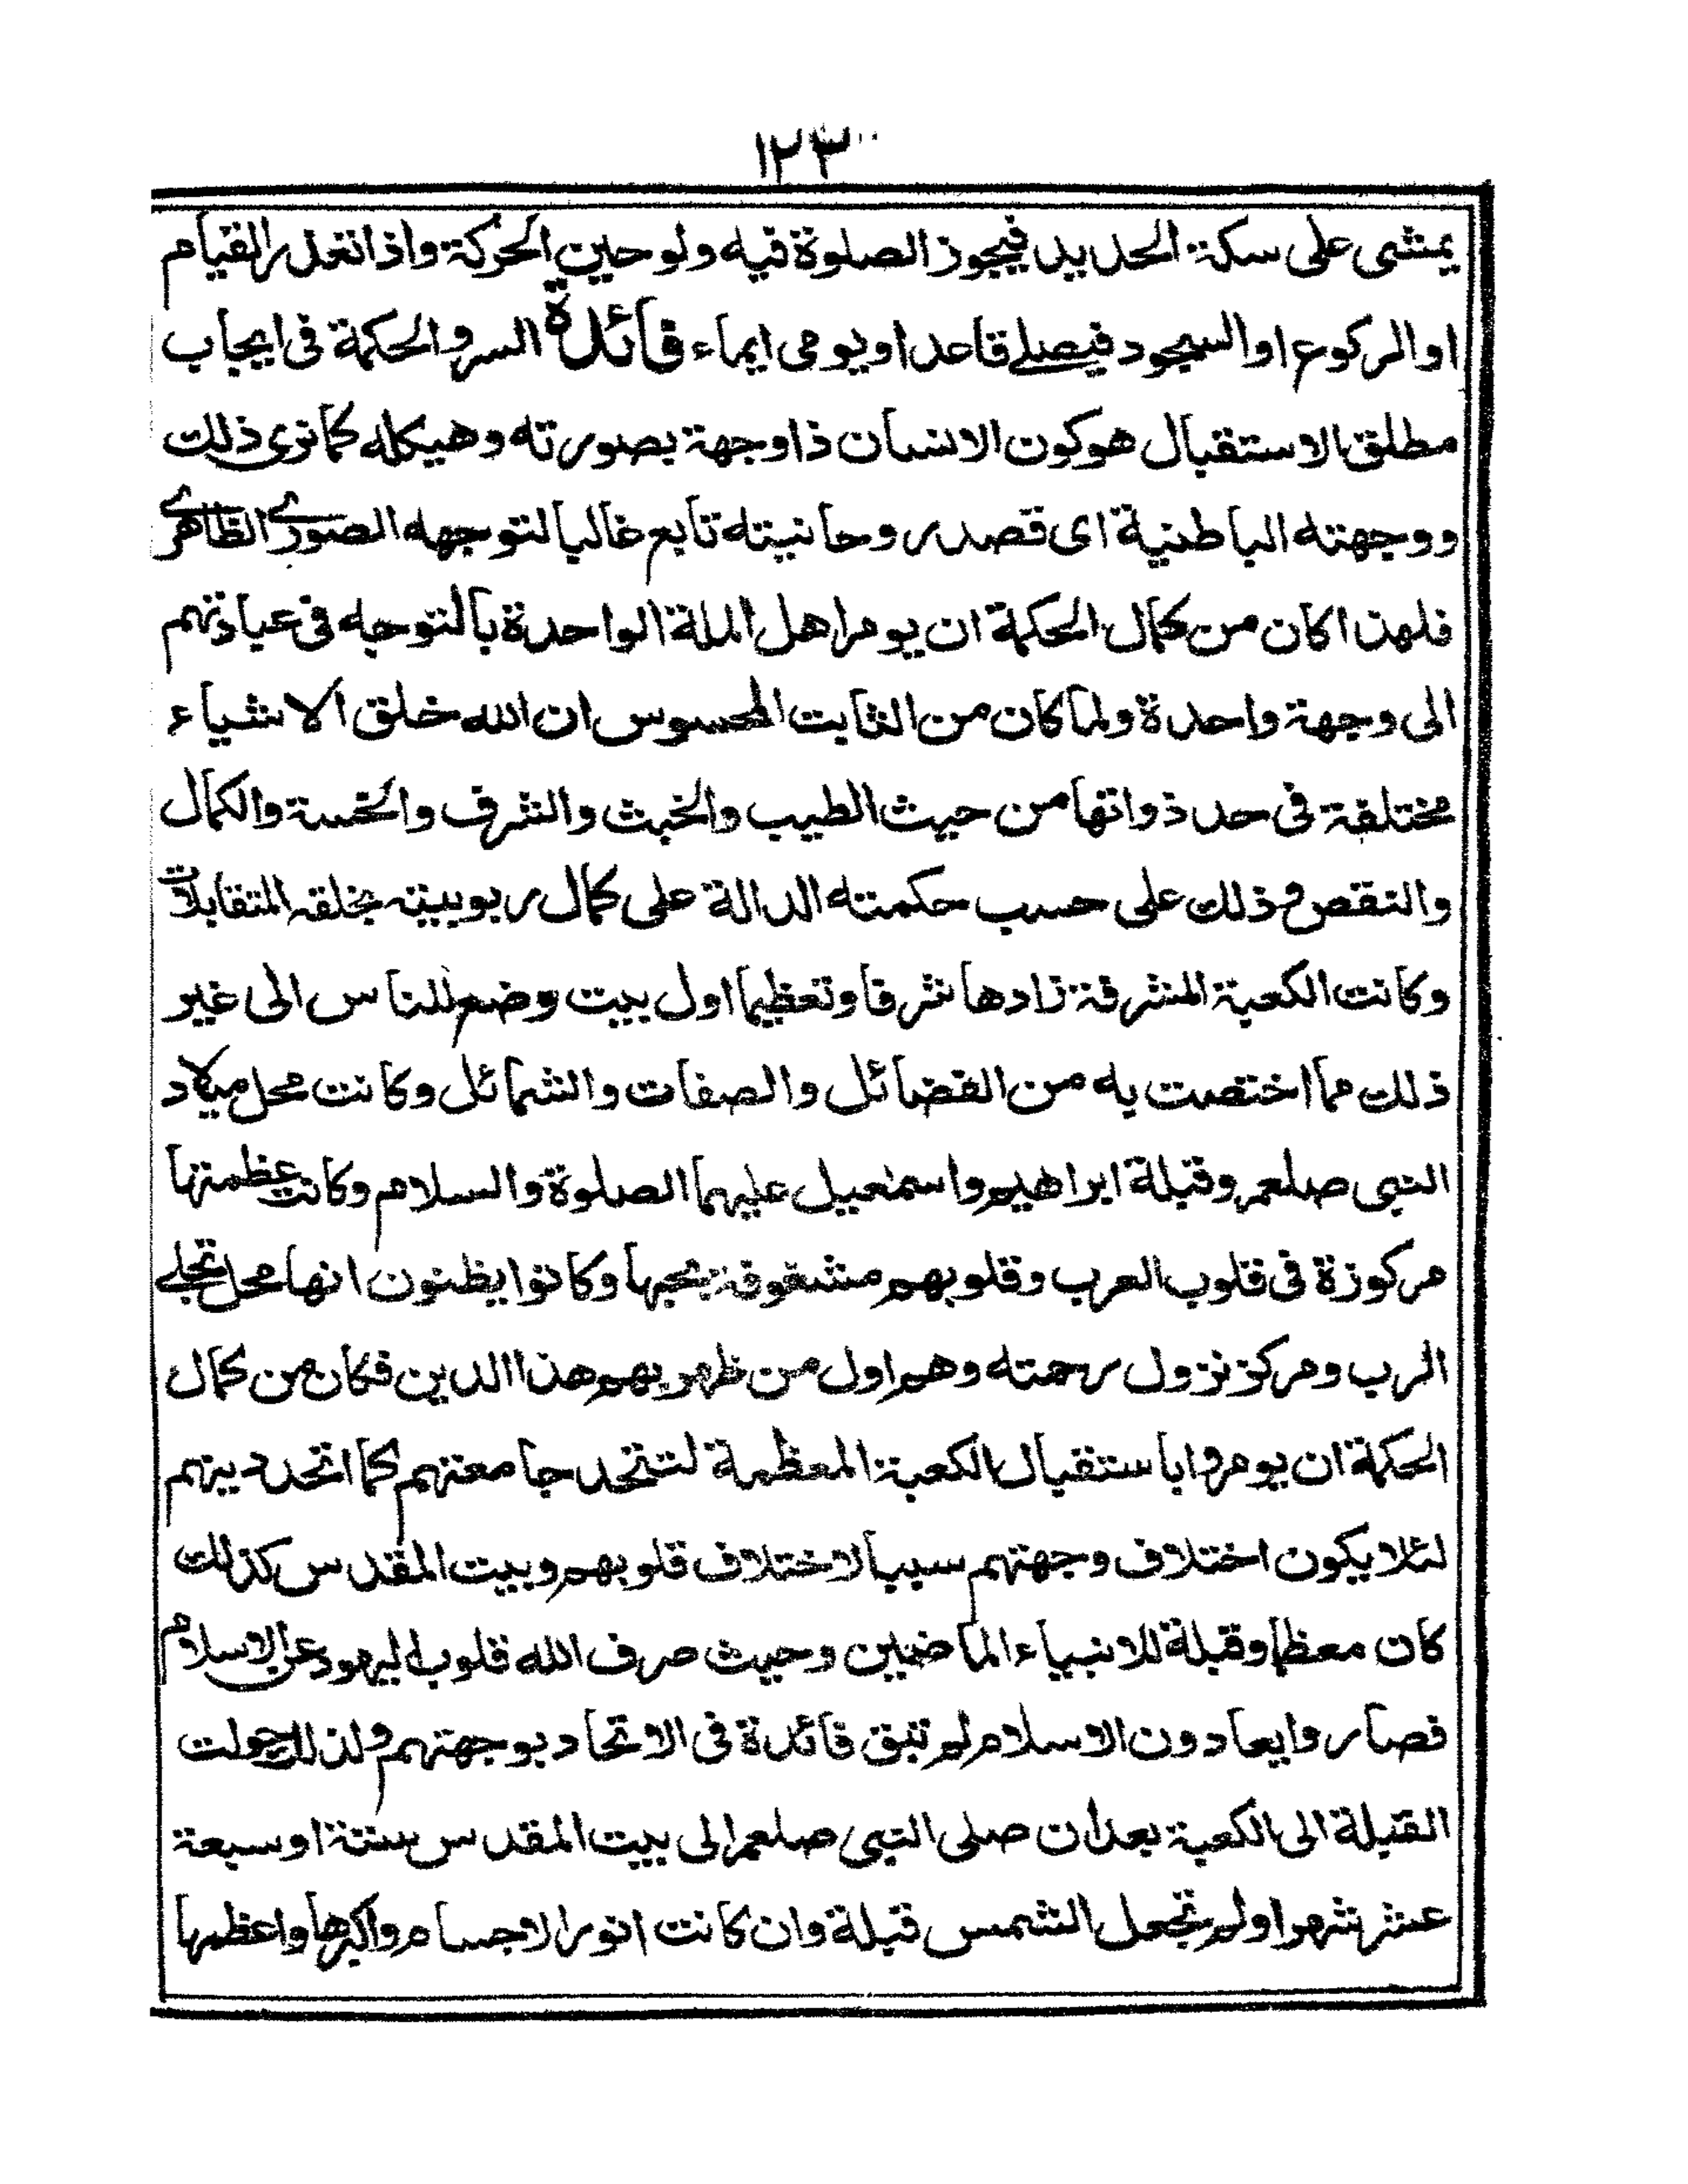 ١٢٣
يمشى على سكة الحديد فيجوز الصلوة فيه ولو حين الحركة واذا تعذر القيام
او الركوع او السجود فيصلے قاعدا ويومى ايماء فائدة السر والحكمة فى ايجاب
مطلق الاستقبال هو كون الانسان ذا وجهة بصورته وهيكله كما نرى ذلك
ووجهته الباطنية اى قصد روحانيته تابع غالبا لتوجهه الصورے الظاهرے
فلهذا كان من كمال الحكمة ان يومر اهل الملة الواحدة بالتوجه فى عبادتهم
الى وجهة واحدة ولما كان من الثابت المحسوس ان الله خلق الاشياء
مختلفة فى حد ذواتها من حيث الطيب والخبث والشرف والخسة والكمال
والنقص وذلك على حسب حكمته الدالة على كمال ربوبيته بخلقه المتقابلات
وكانت الكعبة المشرفة زادها شرفا وتعظيما اول بيت وضع للناس الى غير
ذلك مما اختصت به من الفضائل والصفات والشمائل وكانت محل ميلاد
النبى صلعم وقبلة ابراهيم واسمٰعيل عليهما الصلوة والسلام وكانت عظمتها
مركوزة فى قلوب العرب وقلوبهم مشغوفة بحبها وكانوا يظنون انها محل تجلے
الرب ومركز نزول رحمته وهم اول من ظهر بهم هذا الدين فكان من كمال
الحكمة ان يومروا باستقبال الكعبة المعظمة لتتحد جامعتهم كما اتحد دينهم
لئلا يكون اختلاف وجهتهم سببا لاختلاف قلوبهم وبيت المقدس كذلك
كان معظما وقبلة للانبياء الماضيين وحيث صرف الله قلوب اليهود عن الاسلام
فصاروا يعادون الاسلام لم تبق فائدة فى الاتحاد بوجهتهم ولذلك حولت
القبلة الى الكعبة بعد ان صلى النبى صلعم الى بيت المقدس ستة او سبعة
عشر شهرا ولم تجعل الشمس قبلة وان كانت انور الاجسام واكبرها واعظمها